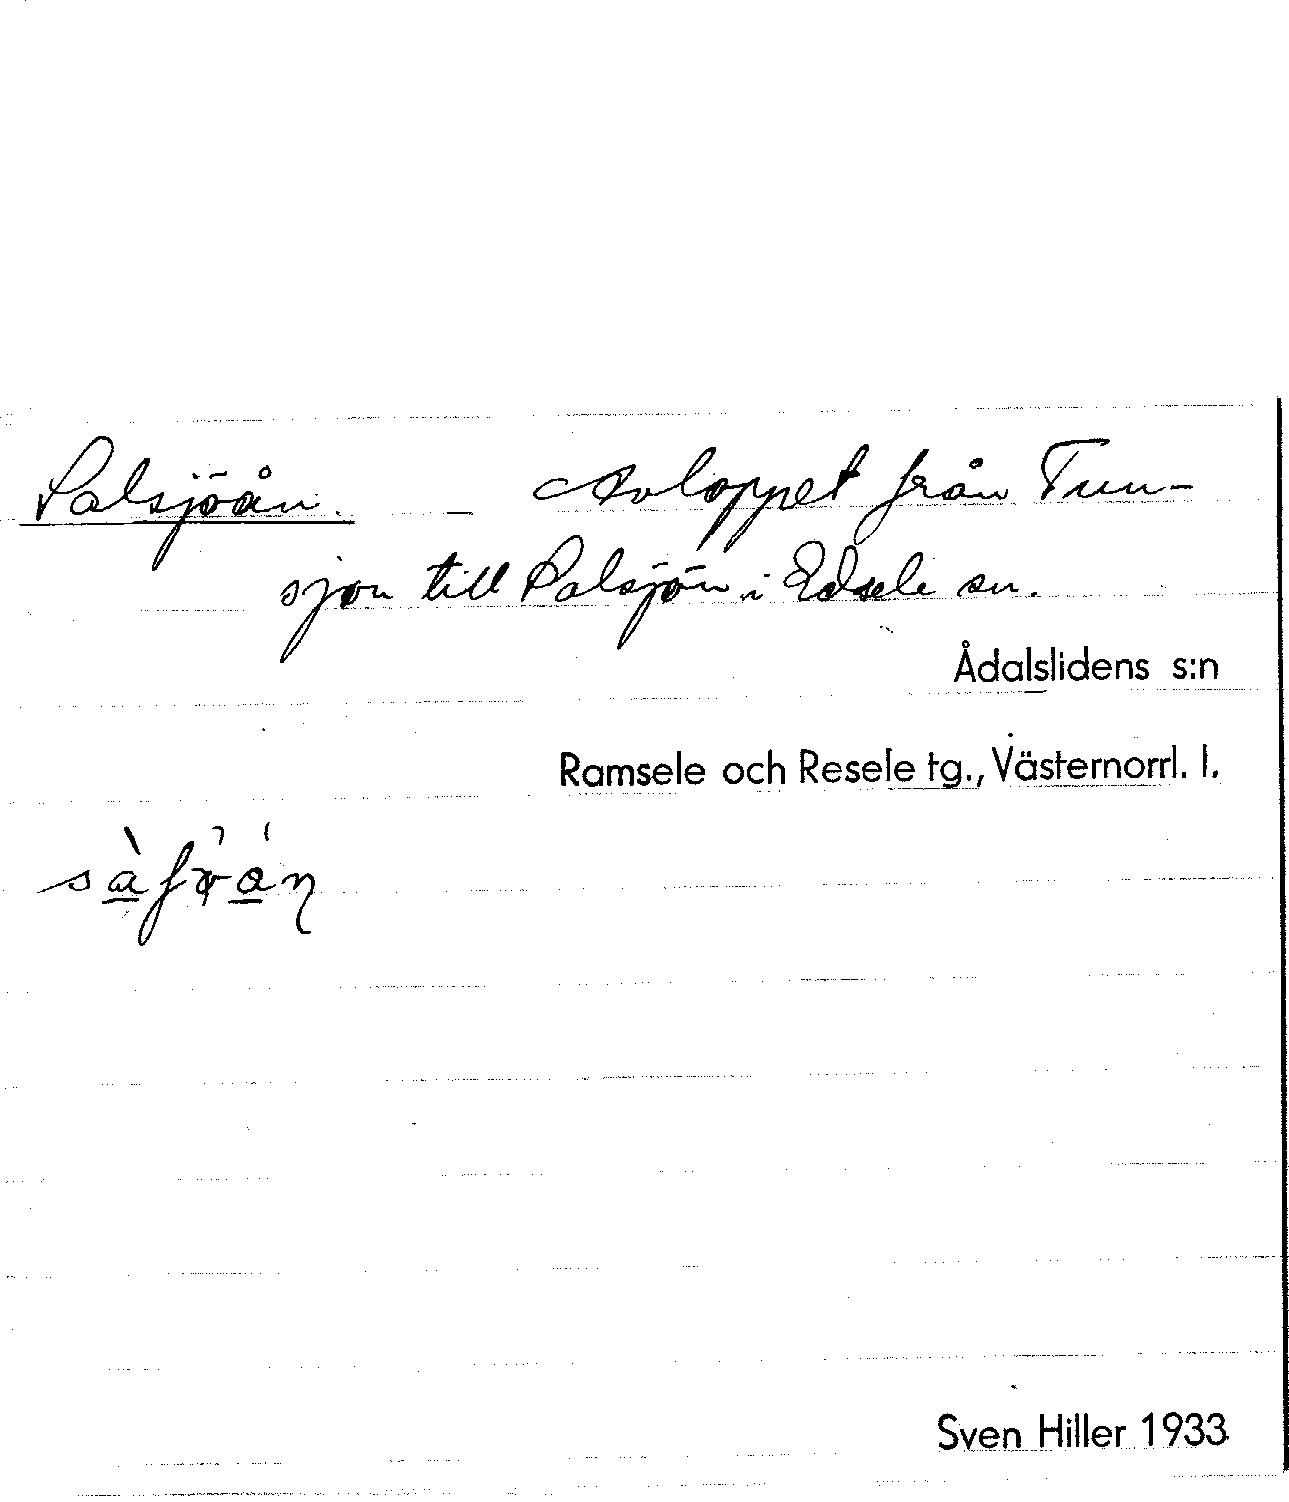 Salsjöån. — Avloppet från Tun-
sjön till Salsjön i Edsele sn.
Ådalslidens s:n
Ramsele och Resele tg., Västernorrl. l.
Sven Hiller 1933